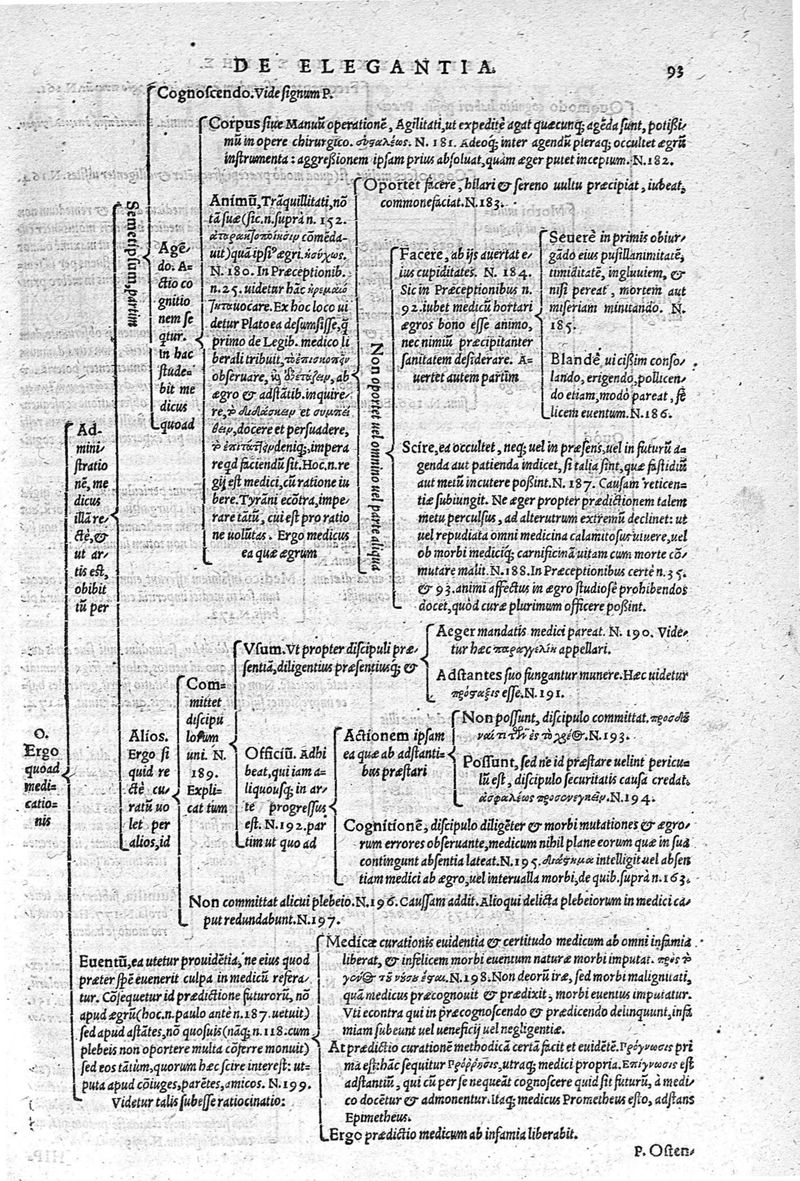 DE ELEGANTIA.
93
Cognoscendo. Vide signum P.
Semetipsum, partim
Agē-
do. A-
ctio co
gnitio
nem se
qtur.
In hac
stude-
bit me
dicus
quoad
Corpus siue Manuū operationē, Agilitati, ut expeditè agat quæcunq; agēda sunt, potißi-
mū in opere chirurgico. ἀσφαλέως. N. 181. Adeoq; inter agendū pleraq; occultet ægrū
instrumenta: aggreßionem ipsam prius absoluat, quàm æger putet inceptum. N. 182.
Animū, Trāquillitati, nō
tā suæ (sic.n.suprà n. 152.
cōmēda-
uit) quā ipsi⁹ ægri. ἡσύχως.
N. 180. In Præceptionib.
n.25. uidetur hāc
uocare. Ex hoc loco ui
detur Plato ea desumsisse, q̄
primo de Legib. medico li
berali tribuit,
obseruare, ab
ægro & adstātib. inquire-
re, τὸ διδάσκειν et συμπεί
θειν, docere et persuadere,
τὸ ἐπιτάττειν deniq;, impera
re qd faciendū sit. Hoc.n.re
gij est medici, cū ratione iu
bere. Tyrāni ecōtra, impe,
rare tātū, cui est pro ratio
ne uolūtas. Ergo medicus
ea quæ ægrum
Oportet facere, hilari & sereno uultu præcipiat, iubeat,
commonefaciat. N. 183.
Non oportet uel omnino uel parte aliqua
Facere, ab ijs auertat e-
ius cupiditates. N. 184.
Sic in Præceptionibus n.
92. iubet medicū hortari
ægros bono esse animo,
nec nimiū præcipitanter
sanitatem desiderare. A-
uertet autem partim
Seuerè in primis obiur-
gādo eius pusillanimitatē,
timiditatē, ingluuiem, &
nisi pereat, mortem aut
miseriam minitando. N.
185.
Blandè uicißim conso-
lando, erigendo, pollicen-
do etiam, modò pareat, fę
licem euentum. N. 186.
Scire, ea occultet, neq; uel in præsens, uel in futurū a-
genda aut patienda indicet, si talia sint, quæ fastidiū
aut metū incutere poßint. N. 187. Causam reticen-
tiæ subiungit. Ne æger propter prædictionem talem
metu perculsus, ad alterutrum extremū declinet: ut
uel repudiata omni medicina calamitosus uiuere, uel
ob morbi mediciq; carnificinā uitam cum morte cō-
mutare malit. N. 188. In Præceptionibus certè n. 35.
& 93. animi affectus in ægro studiosè prohibendos
docet, quòd curæ plurimum officere poßint.
Ad-
mini-
stratio
nē, me
dicus
illā re-
ctè, &
ut ar-
tis est,
obibit
tū per
O.
Ergo
quoad
medi-
catio-
nis
Alios.
Ergo si
quid re
ctè cu-
ratū uo
let per
alios, id
Com-
mittet
discipu
lorum
uni. N.
189.
Expli-
cat tum
Vsum. Vt propter discipuli præ-
sentiā, diligentius præsentiusq; &
Aeger mandatis medici pareat. N. 190. Vide-
tur hæc παραγγελίη appellari.
Adstantes suo fungantur munere. Hæc uidetur
πρόταξις esse. N. 191.
Officiū. Adhi
beat, qui iam a-
liquousq; in ar-
te progressus
est. N. 192. par
tim ut quo ad
Actionem ipsam
ea quæ ab adstanti-
bus præstari
Non possunt, discipulo committat.
N. 193.
Possunt, sed nè id præstare uelint pericu-
lū est, discipulo securitatis causa credat,
ἀσφαλέως προσενεγκεῖν. N. 194.
Cognitionē, discipulo diligēter & morbi mutationes & ægro-
rum errores obseruante, medicum nihil plane eorum quæ in sua
contingunt absentia lateat. N. 195. διάστημα intelligit uel absen
tiam medici ab ægro, uel interualla morbi, de quib. suprà n. 163.
Non committat alicui plebeio. N. 196. Caussam addit. Alioqui delicta plebeiorum in medici ca-
put redundabunt. N. 197.
Euentū, ea utetur prouidētia, ne eius quod
præter spē euenerit culpa in medicū refera-
tur. Cōsequetur id prædictione futurorū, nō
apud ægrū (hoc.n. paulo antè n. 187. uetuit)
sed apud astātes, nō quosuis (nāq; n. 118. cum
plebeis non oportere multa cōferre monuit)
sed eos tātum, quorum hæc scire interest: ut-
puta apud cōiuges, parētes, amicos. N. 199.
Videtur talis subesse ratiocinatio:
Medicæ curationis euidentia & certitudo medicum ab omni infamia
liberat, & infelicem morbi euentum naturæ morbi imputat.
N. 198. Non deorū iræ, sed morbi malignitati,
quā medicus præcognouit & prædixit, morbi euentus imputatur.
Vti econtra qui in præcognoscendo & prædicendo delinquunt, infa
miam subeunt uel ueneficij uel negligentiæ.
At prædictio curationē methodicā certā facit et euidētē. Πρόγνωσις pri
ma est: hāc sequitur Πρόῤῥησις, utraq; medici propria. Επίγνωσις est
adstantiū, qui cū per se nequeāt cognoscere quid sit futurū, à medi-
co docētur & admonentur. Itaq; medicus Prometheus esto, adstans
Epimetheus.
Ergo prædictio medicum ab infamia liberabit.
P. Osten-